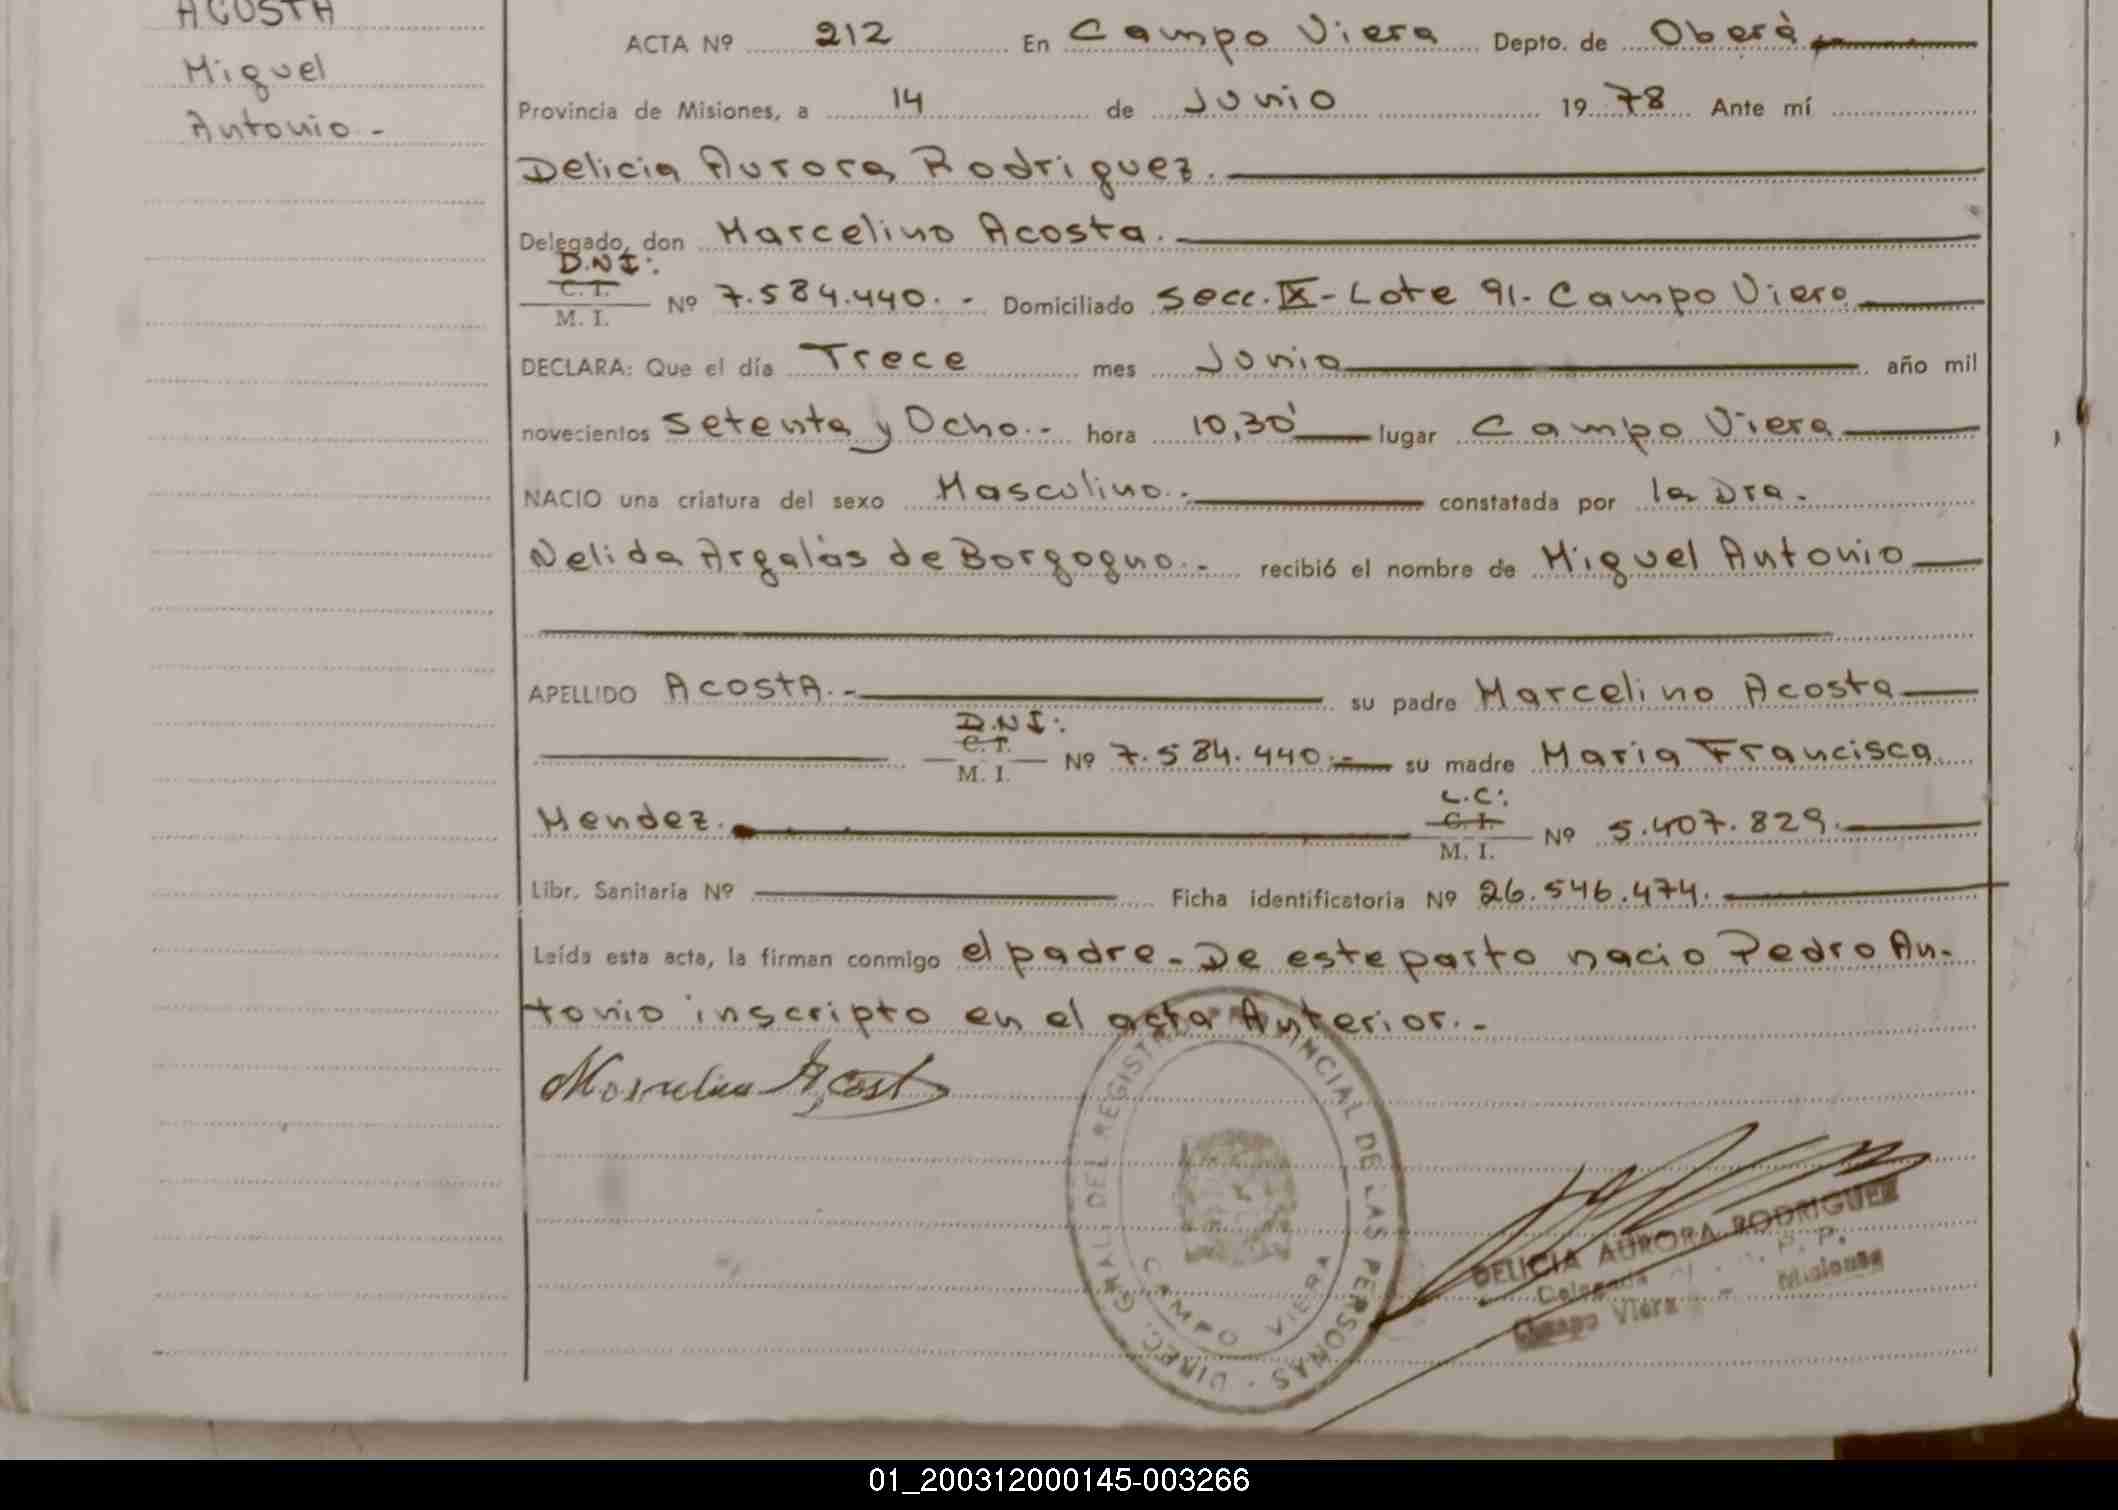 ACOSTA
Miguel
Antonio -
ACTA Nº 212 En Campo Viera Depto. de Oberá
Provincia de Misiones, a 14 de Junio 1978 Ante mí
Delicia Aurora Rodriguez.
Delegado, don Marcelino Acosta.
D.N.I:
C. I.
M. I. Nº 7.584.440. - Domiciliado Secc. IX - Lote 91 - Campo Viera
DECLARA: Que el día Trece mes Junio año mil
novecientos Setenta y Ocho.- hora 10,30' lugar Campo Viera
NACIO una criatura del sexo Masculino.- constatada por la Dra.
Nelida Argalás de Borgogno.- recibió el nombre de Miguel Antonio
APELLIDO ACOSTA.- su padre Marcelino Acosta
D.N.I:
C. I.
M. I. Nº 7.584.440.- su madre Maria Francisca
Mendez.
L.C:
C. I.
M. I. Nº 5.407.829.
Libr. Sanitaria Nº Ficha identificatoria Nº 26.546.474.
Leída esta acta, la firman conmigo el padre - De este parto nacio Pedro An-
tonio inscripto en el acta Anterior.-
Marcelino Acosta
DIREC. GRAL. DEL REGISTRO PROVINCIAL DE LAS PERSONAS
CAMPO VIERA
DELICIA AURORA RODRIGUEZ
Delegada
Campo Viera - Misiones
01_200312000145-003266